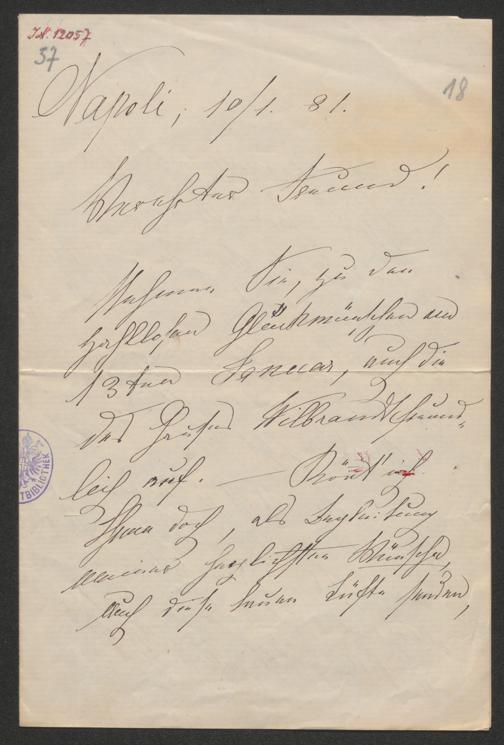 I.N. 12057
37
18
Napoli, 10/1. 81.
Verehrter Freund!
Nehmen Sie, zu den
zahllosen Glückwünschen am
13ten Januar, auch die
des Hauses Wilbrandt freund-
lich auf. — Könt' ich
Ihnen doch, als Begleitung
meiner herzlichsten Wünsche,
auch diese lauen Lüfte senden,
BIBLIOTHEK